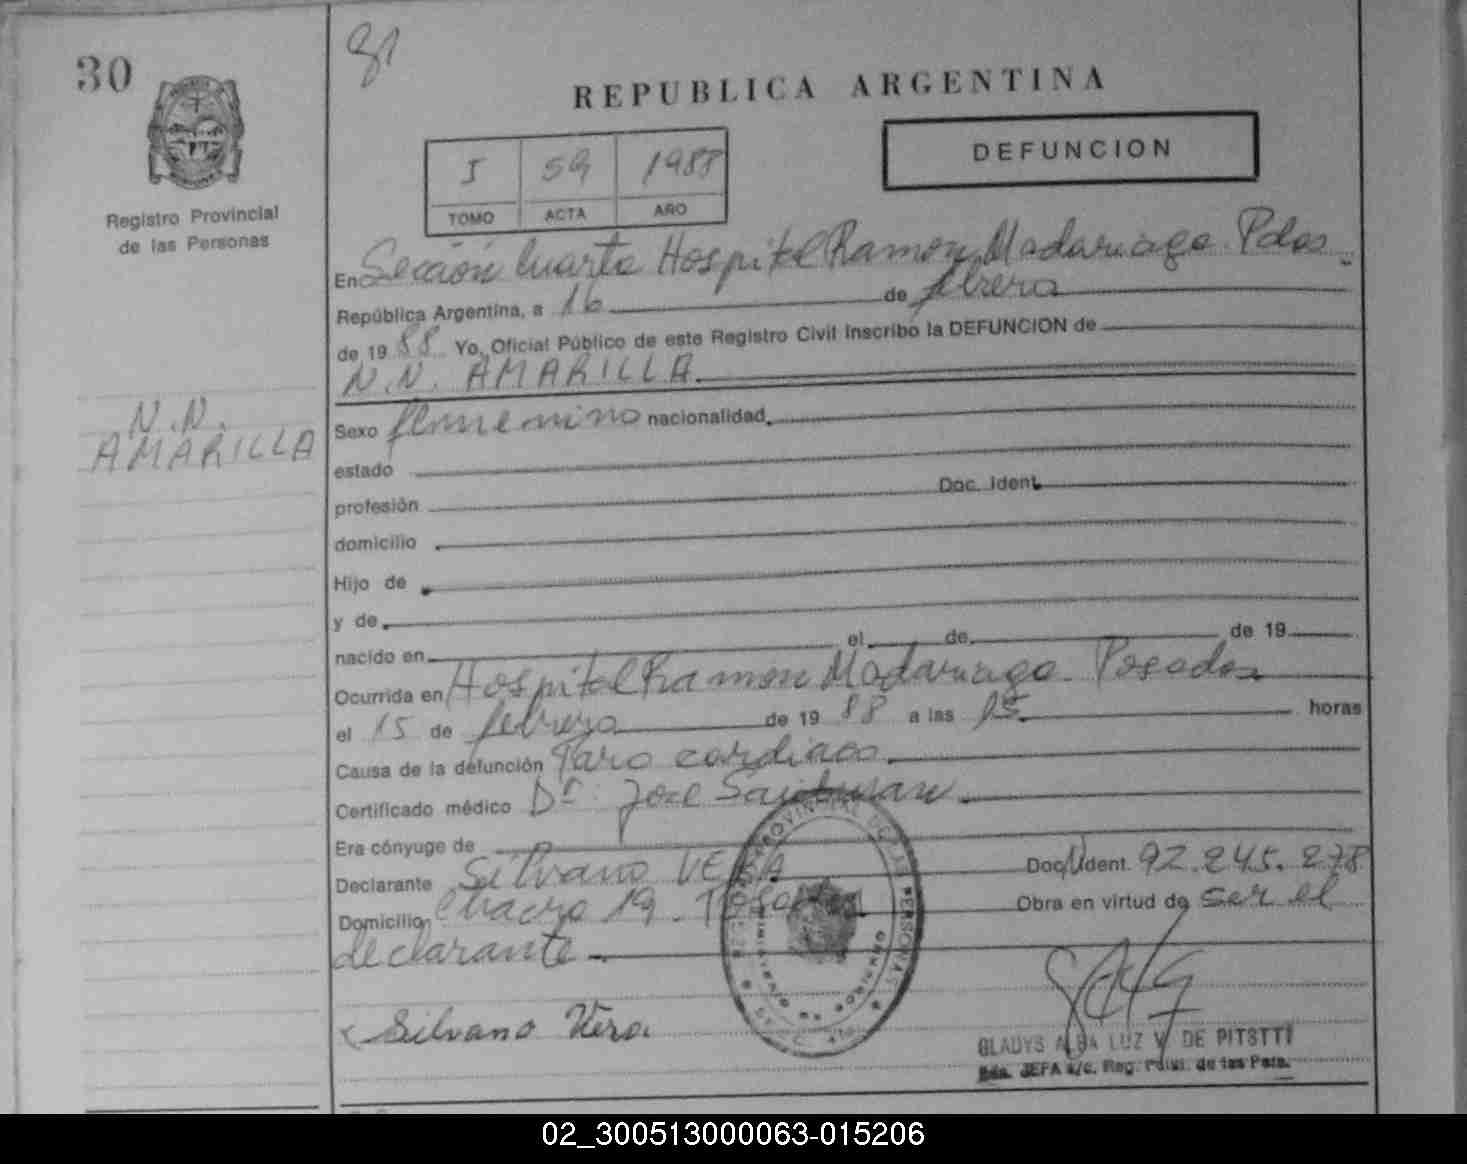 30
81
REPUBLICA ARGENTINA
I 59 1988
TOMO ACTA AÑO
DEFUNCION
Registro Provincial
de las Personas
En Sección Cuarta Hospital Ramón Madariaga. Pdas.
República Argentina, a 16 de febrero
de 19 88 Yo, Oficial Público de este Registro Civil inscribo la DEFUNCION de
N.N. AMARILLA.
N.N.
AMARILLA
Sexo femenino nacionalidad
estado
profesión Doc. Ident.
domicilio
Hijo de
y de
nacido en el de de 19
Ocurrida en Hospital Ramon Madariaga. Posadas
el 15 de febrero de 19 88 a las 15 horas
Causa de la defunción Paro cardiaco.
Certificado médico Dr. José
Era cónyuge de
Declarante Silvano VERA Doc. Ident. 92.245.278
Domicilio Chacra 19. Posadas Obra en virtud de ser el
declarante
Silvano Vera.
GLADYS ALBA LUZ V. DE
JEFA a/c. Reg. de las Pers.
02_300513000063-015206